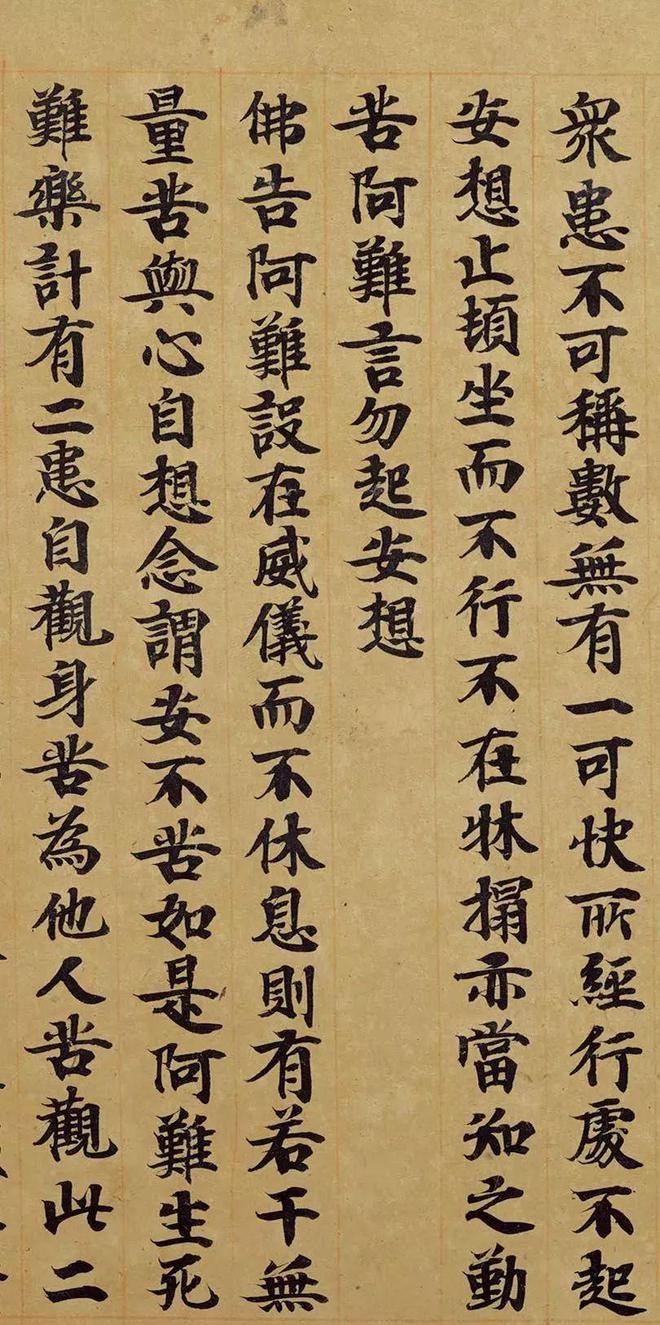 眾患不可稱數無有一可快所經行處不起
安想止頓坐而不行不在牀榻亦當知之勤
苦阿難言勿起安想
佛告阿難設在威儀而不休息則有若干無
量苦與心自想念謂安不苦如是阿難生死
難樂計有二患自觀身苦為他人苦觀此二